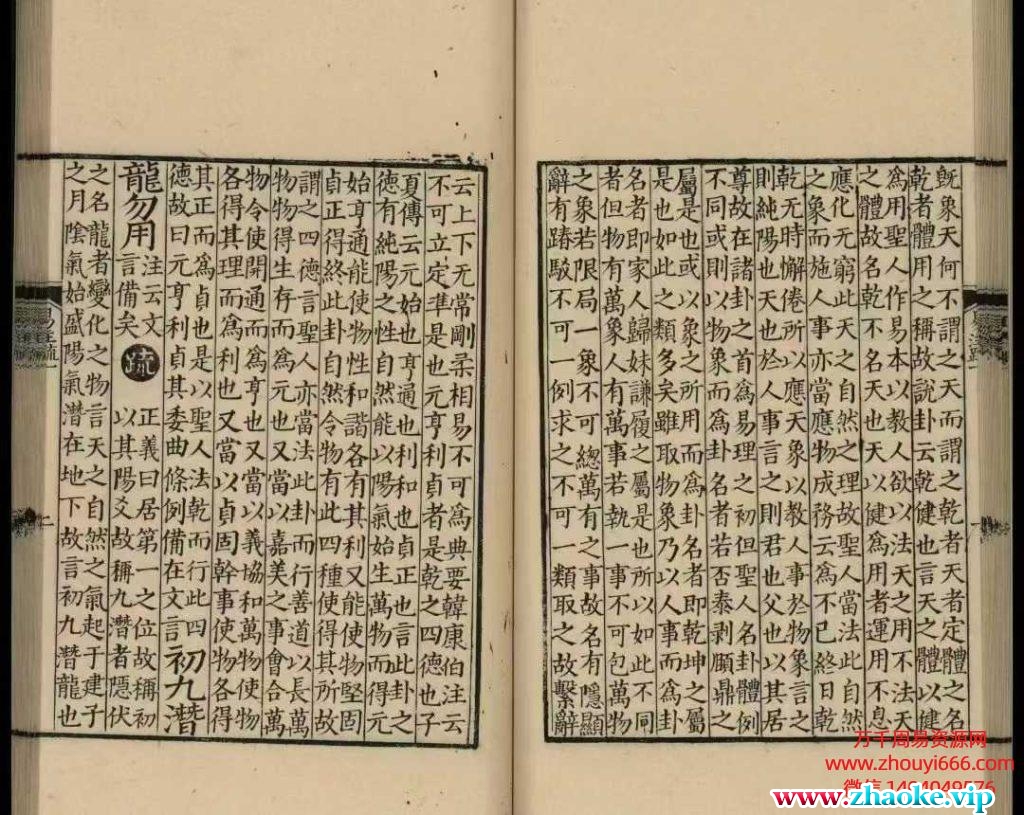 既象天何不謂之天而謂之乾者天者定體之名
乾者體用之稱故説卦云乾健也言天之體以健
爲用聖人作易本以教人欲以法天之用不法天
之體故名乾不名天也天以健爲用者運用不息
應化无窮此天之自然之理故聖人當法此自然
之象而施人事亦當應物成務云爲不已終日乾
乾无時懈倦所以應天象以教人事於物象言之
則純陽也天也於人事言之則君也父也以其居
尊故在諸卦之首爲易理之初但聖人名卦體例
不同或則以物象而爲卦名者若否泰剥頤鼎之
屬是也或以象之所用而爲卦名者即乾坤之屬
是也如此之類多矣雖取物象乃以人事而爲卦
名者即家人歸妹謙履之屬是也所以如此不同
者但物有萬象人有萬事若執一事不可包萬物
之象若限局一象不可緫萬有之事故名有隱顯
辭有踳駁不可一例求之不可一類取之故繫辭
云上下无常剛柔相易不可爲典要韓康伯注云
不可立定準是也元亨利貞者是乾之四德也子
夏傳云元始也亨通也利和也貞正也言此卦之
德有純陽之性自然能以陽氣始生萬物而得元
始亨通能使物性和諧各有其利又能使物堅固
貞正得終此卦自然令物有此四種使得其所故
謂之四德言聖人亦當法此卦而行善道以長萬
物物得生存而爲元也又當以嘉美之事會合萬
物令使開通而爲亨也又當以義協和萬物使物
各得其理而爲利也又當以貞固幹事使物各得
其正而爲貞也是以聖人法乾而行此四
德故曰元亨利貞其委曲條例備在文言
初九潛
龍勿用
注云文
言備矣
疏
正義曰居第一之位故稱初
以其陽爻故稱九潛者隱伏
之名龍者變化之物言天之自然之氣起于建子
之月陰氣始盛陽氣潛在地下故言初九潛龍也
万千周易资源网
www.zhouyi666.com
www.zhaoke.vip